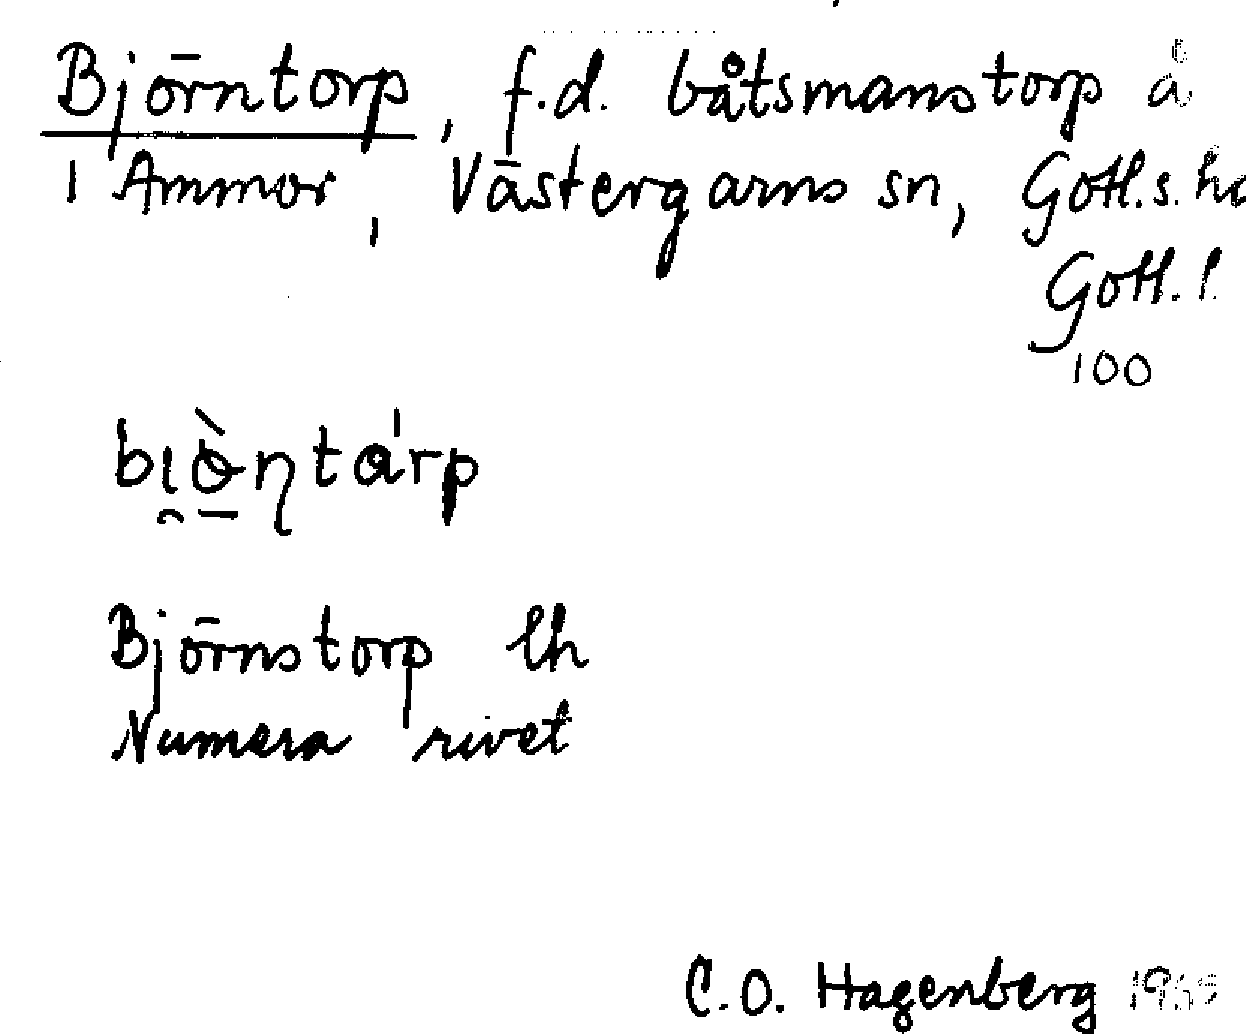 Björntorp, f.d. båtsmanstorp å
1 Ammor, Västergarns sn, Gotl.s. hd
Gotl. l.
100
bi̯ò̱ɳtɑ́rp
Björnstorp lh
Numera rivet
C.O. Hagenberg